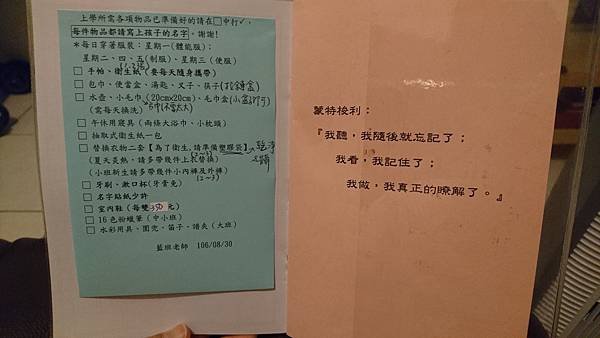 上學所需各項物品已準備好的請在□中打✓。
每件物品都請寫上孩子的名字。謝謝!
*每日穿著服裝：星期一(體能服)；
星期二、四、五(制服)、星期三(便服)
□ 手帕、衛生紙(要每天隨身攜帶)
□ 包巾、便當盒、湯匙、叉子、筷子
□ 水壺、小毛巾(20cmx20cm)、毛巾盒
(需每天換洗)
□ 午休用寢具(兩條大浴巾、小枕頭)
□ 抽取式衛生紙一包
□ 替換衣物二套【為了衛生,請準備塑膠袋】
(夏天炎熱，請多帶幾件上衣替換)
(小班新生請多帶幾件小內褲及外褲)
(2~3)
□ 牙刷、漱口杯(牙膏免)
□ 名字貼紙少許
□ 室內鞋(每雙350元)
□ 16色粉蠟筆(中小班)
□ 水彩用具、圍兜、笛子、譜夾(大班)
藍班老師 106/08/30
蒙特梭利：
『我聽，我隨後就忘記了；
我看，我記住了；
我做，我真正的瞭解了。』